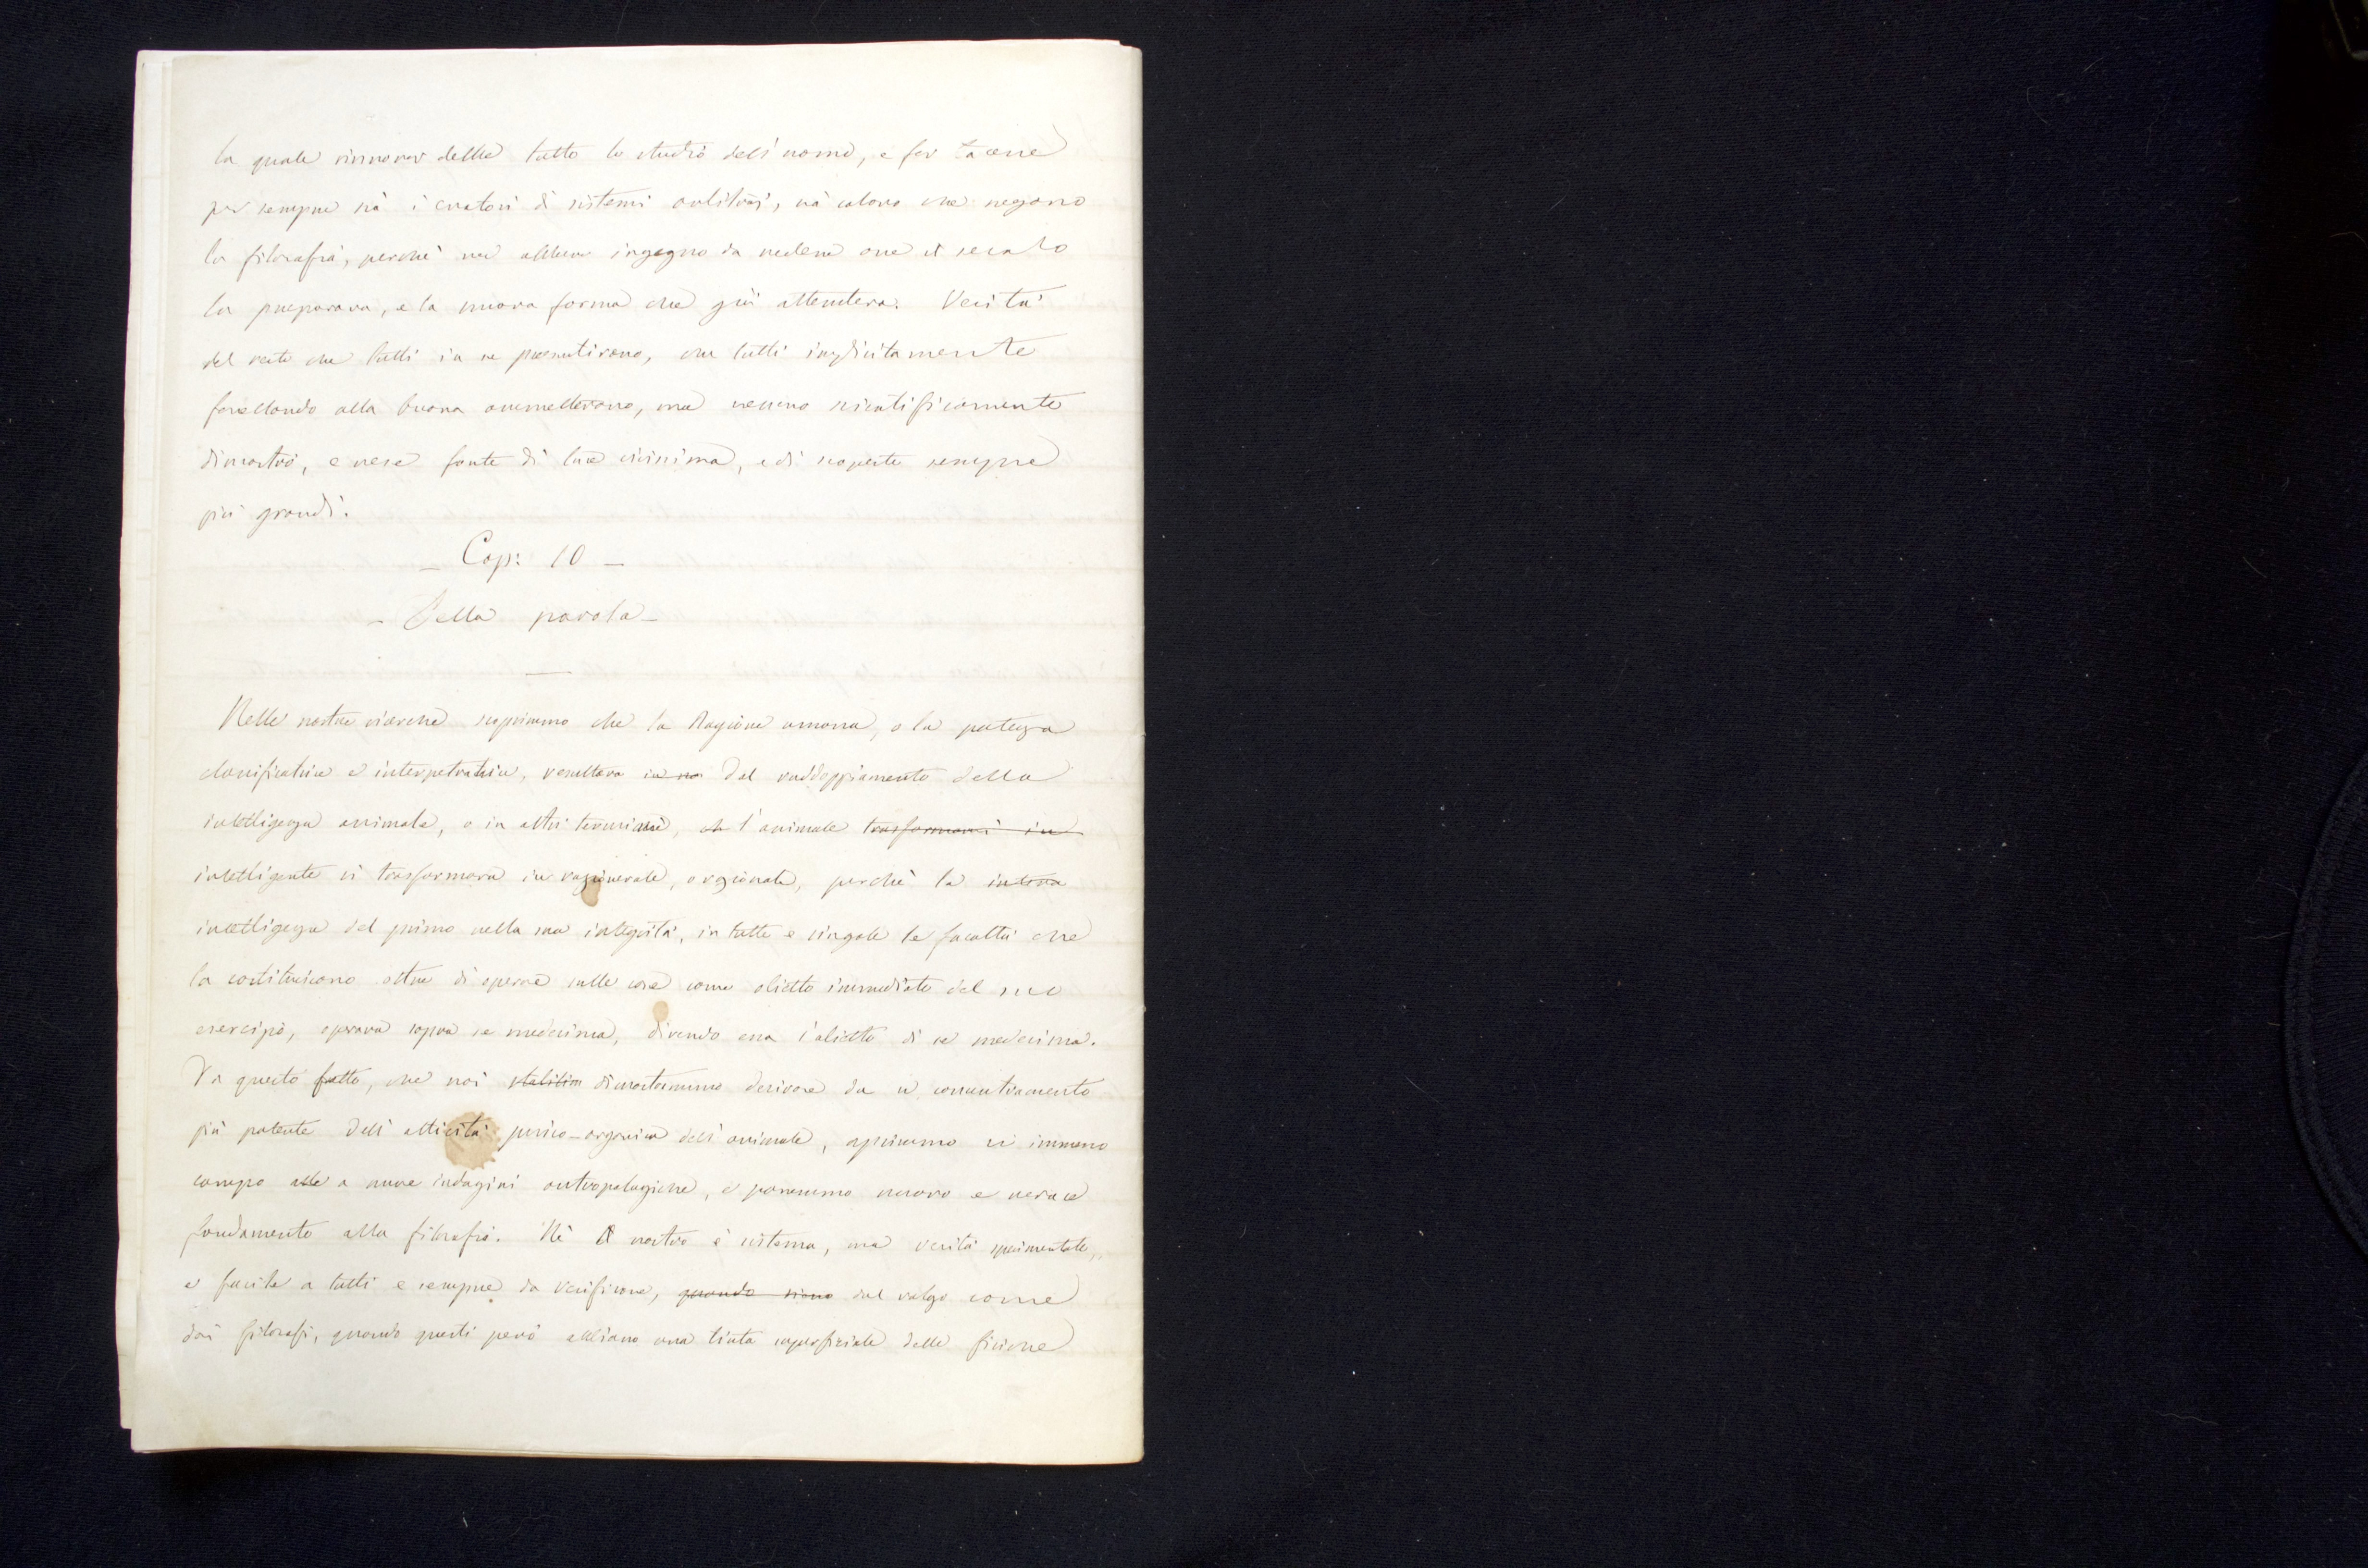 la quale rinnovar debba tutto lo studio dell'uomo, e far tacere
per sempre sia i creatori di sistemi arbitrari, sia coloro che negano
la filosofia, perchè non abbiano ingegno da vedere ove il secolo
la preparava, e la nuova forma che già attendeva. Verità
del resto che tutti in se presentirono, che tutti implicitamente
favellando alla buona ammetterono, ma nessuno scientificamente
dimostrò, e rese fonte di luce vivissima, e di scoperte sempre
più grandi.
– Cap: 10 –
– Della parola –
Nelle nostre ricerche scoprimmo che la Ragione umana, o la potenza
classificatrice e interpetratrice, resultava in no dal raddoppiamento della
intelligenza animale, o in altri termini, ch l'animale trasformarsi in
intelligente si trasformava in ragionevole, o razionale, perchè la intera
intelligenza del primo nella sua integrità, in tutte e singole le facoltà che
la costituiscono oltre di operare sulle cose come obietto immediato del suo
esercizio, operava sopra se medesima, divenendo essa l'obietto di se medesima.
Da questo fatto, che noi stabilim dimostrammo derivare da un concentramento
più potente dell'attività psico-organica dell'animale, aprimmo un immenso
campo alle a nuove indagini antropologiche, e ponemmo nuovo e verace
fondamento alla filosofia. Nè il nostro è sistema, ma verità sperimentale,
e facile a tutti e sempre da verificare, quando siano dal volgo come
dai filosofi, quando questi però abbiano una tinta superficiale delle fisiche